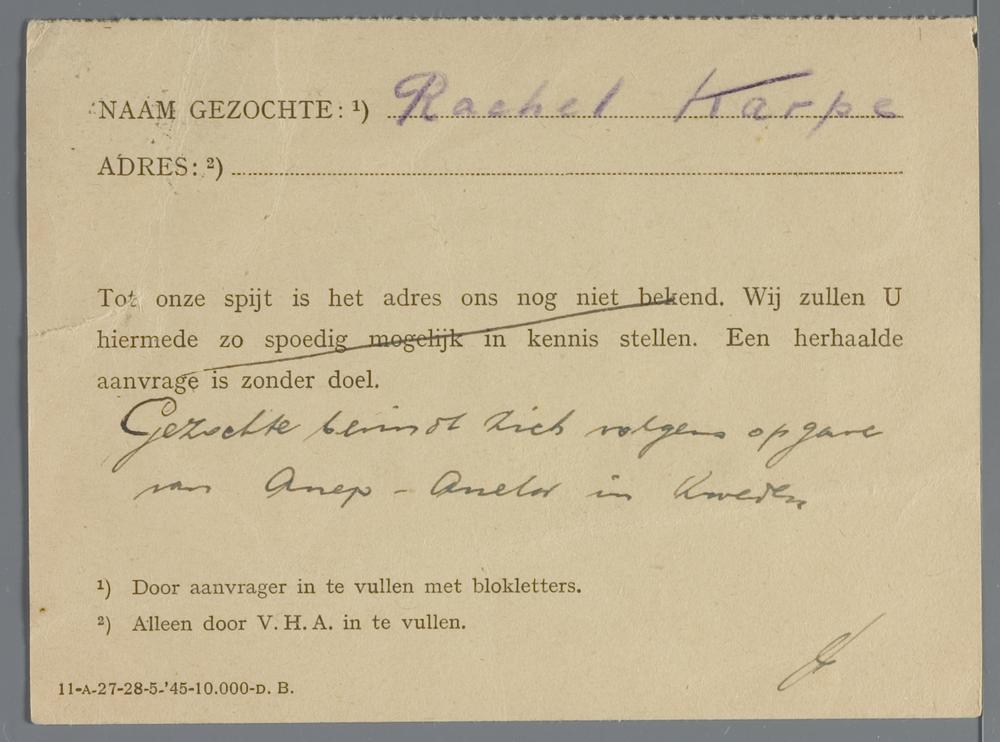 NAAM GEZOCHTE: ¹) Rachel Karpe
ADRES: ²)
Tot onze spijt is het adres ons nog niet bekend. Wij zullen U
hiermede zo spoedig mogelijk in kennis stellen. Een herhaalde
aanvrage is zonder doel.
Gezochte bevindt zich volgens opgave
van Anep - Aneta in Zweden
¹) Door aanvrager in te vullen met blokletters.
²) Alleen door V. H. A. in te vullen.
11-A-27-28-5-'45-10.000-D. B.